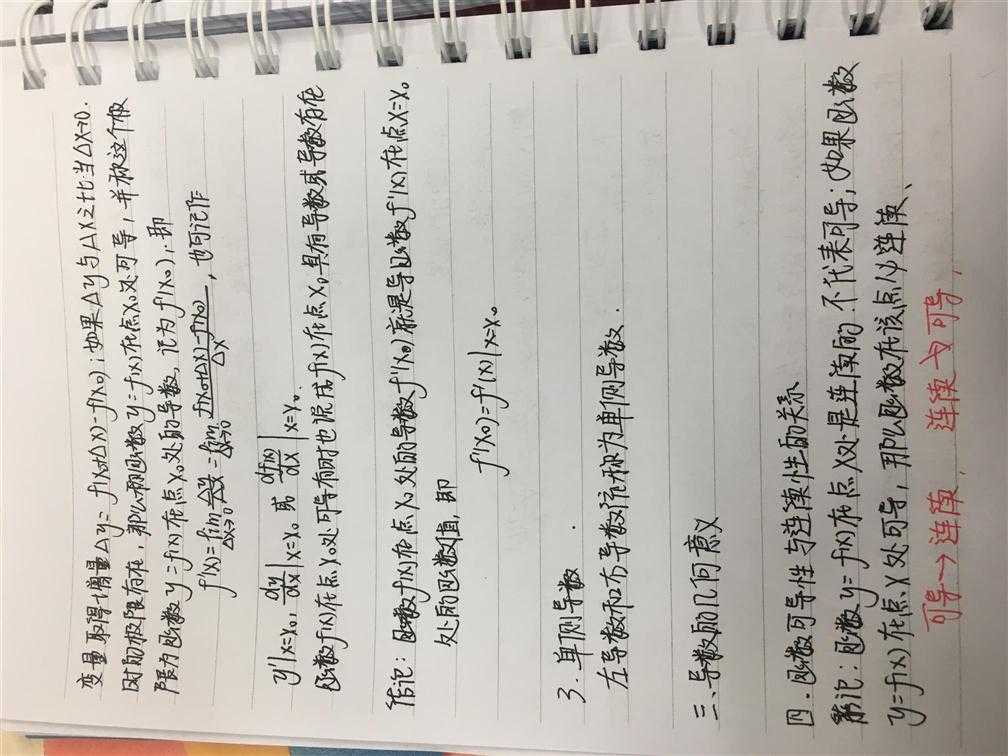 变量取得增量△y=f(x₀+△x)-f(x₀);如果△y与△x之比当△x→0.
时的极限存在,那么称函数y=f(x)在点x₀处可导,并称这个极
限为函数y=f(x)在点x₀处的导数,记为f'(x₀),即
f'(x)=lim△x→0 △y/△x=lim△x→0 f(x₀+△x)-f(x₀)/△x,也可记作
y'|x=x₀,dy/dx|x=x₀ 或 df(x)/dx|x=x₀.
函数f(x)在点x₀处可导有时也说成f(x)在点x₀具有导数或导数存在
结论:函数f(x)在点x₀处的导数f'(x₀)就是导函数f'(x)在点x=x₀
处的函数值,即
f'(x₀)=f'(x)|x=x₀
3.单侧导数.
左导数和右导数统称为单侧导数.
三.导数的几何意义
四.函数可导性与连续性的关系
结论:函数y=f(x)在点x处是连续的.不代表可导;如果函数
y=f(x)在点x处可导,那么函数在该点必连续、
可导→连续, 连续↛可导,